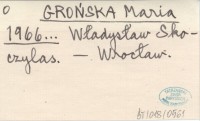 O
GROŃSKA Maria
1966... Władysław Sko-
czylas. — Wrocław.